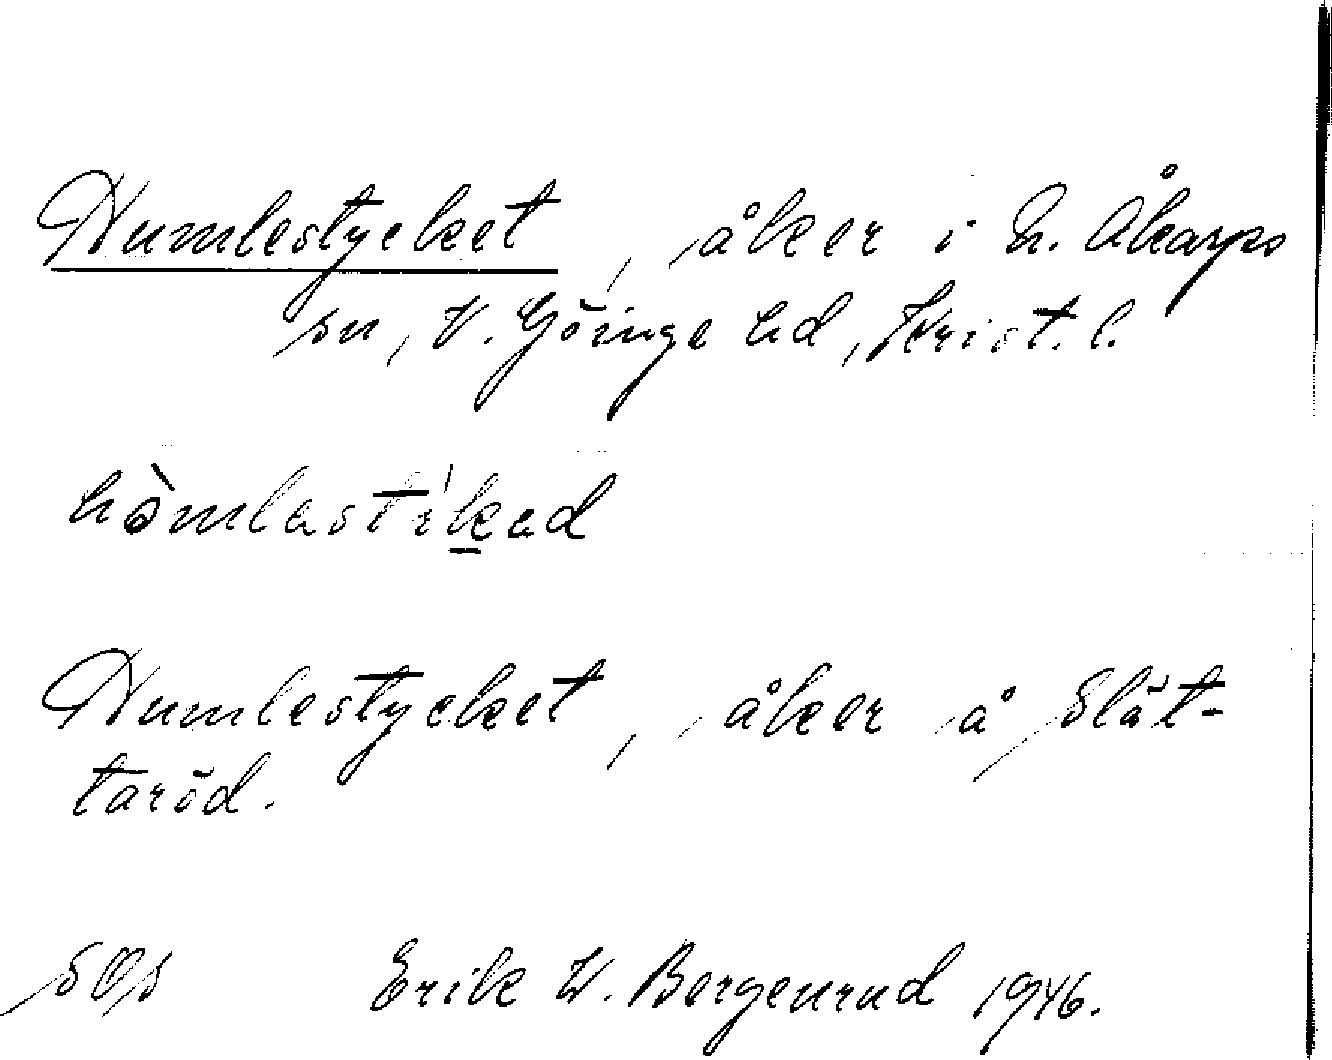 Humlestycket, åker i N. Åkarps
sn, V. Göinge hd, Krist. l.
hòmlastíkad
Humlestycket, åker å Slät-
taröd.
Erik W. Bergenrud 1946.